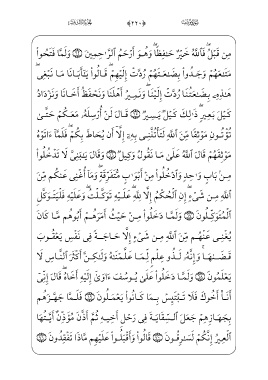 (٢٢٠)
مِن قَبْلُ فَٱللَّهُ خَيْرٌ حَٰفِظًا وَهُوَ أَرْحَمُ ٱلرَّٰحِمِينَ ۝ وَلَمَّا فَتَحُوا۟
مَتَٰعَهُمْ وَجَدُوا۟ بِضَٰعَتَهُمْ رُدَّتْ إِلَيْهِمْ قَالُوا۟ يَٰٓأَبَانَا مَا نَبْغِى
هَٰذِهِۦ بِضَٰعَتُنَا رُدَّتْ إِلَيْنَا وَنَمِيرُ أَهْلَنَا وَنَحْفَظُ أَخَانَا وَنَزْدَادُ
كَيْلَ بَعِيرٍ ذَٰلِكَ كَيْلٌ يَسِيرٌ ۝ قَالَ لَنْ أُرْسِلَهُۥ مَعَكُمْ حَتَّىٰ
تُؤْتُونِ مَوْثِقًا مِّنَ ٱللَّهِ لَتَأْتُنَّنِى بِهِۦٓ إِلَّآ أَن يُحَاطَ بِكُمْ فَلَمَّآ ءَاتَوْهُ
مَوْثِقَهُمْ قَالَ ٱللَّهُ عَلَىٰ مَا نَقُولُ وَكِيلٌ ۝ وَقَالَ يَٰبَنِىَّ لَا تَدْخُلُوا۟
مِنۢ بَابٍ وَٰحِدٍ وَٱدْخُلُوا۟ مِنْ أَبْوَٰبٍ مُّتَفَرِّقَةٍ وَمَآ أُغْنِى عَنكُم مِّنَ
ٱللَّهِ مِن شَىْءٍ إِنِ ٱلْحُكْمُ إِلَّا لِلَّهِ عَلَيْهِ تَوَكَّلْتُ وَعَلَيْهِ فَلْيَتَوَكَّلِ
ٱلْمُتَوَكِّلُونَ ۝ وَلَمَّا دَخَلُوا۟ مِنْ حَيْثُ أَمَرَهُمْ أَبُوهُم مَّا كَانَ
يُغْنِى عَنْهُم مِّنَ ٱللَّهِ مِن شَىْءٍ إِلَّا حَاجَةً فِى نَفْسِ يَعْقُوبَ
قَضَىٰهَا وَإِنَّهُۥ لَذُو عِلْمٍ لِّمَا عَلَّمْنَٰهُ وَلَٰكِنَّ أَكْثَرَ ٱلنَّاسِ لَا
يَعْلَمُونَ ۝ وَلَمَّا دَخَلُوا۟ عَلَىٰ يُوسُفَ ءَاوَىٰٓ إِلَيْهِ أَخَاهُ قَالَ إِنِّىٓ
أَنَا۠ أَخُوكَ فَلَا تَبْتَئِسْ بِمَا كَانُوا۟ يَعْمَلُونَ ۝ فَلَمَّا جَهَّزَهُم
بِجَهَازِهِمْ جَعَلَ ٱلسِّقَايَةَ فِى رَحْلِ أَخِيهِ ثُمَّ أَذَّنَ مُؤَذِّنٌ أَيَّتُهَا
ٱلْعِيرُ إِنَّكُمْ لَسَٰرِقُونَ ۝ قَالُوا۟ وَأَقْبَلُوا۟ عَلَيْهِم مَّاذَا تَفْقِدُونَ ۝